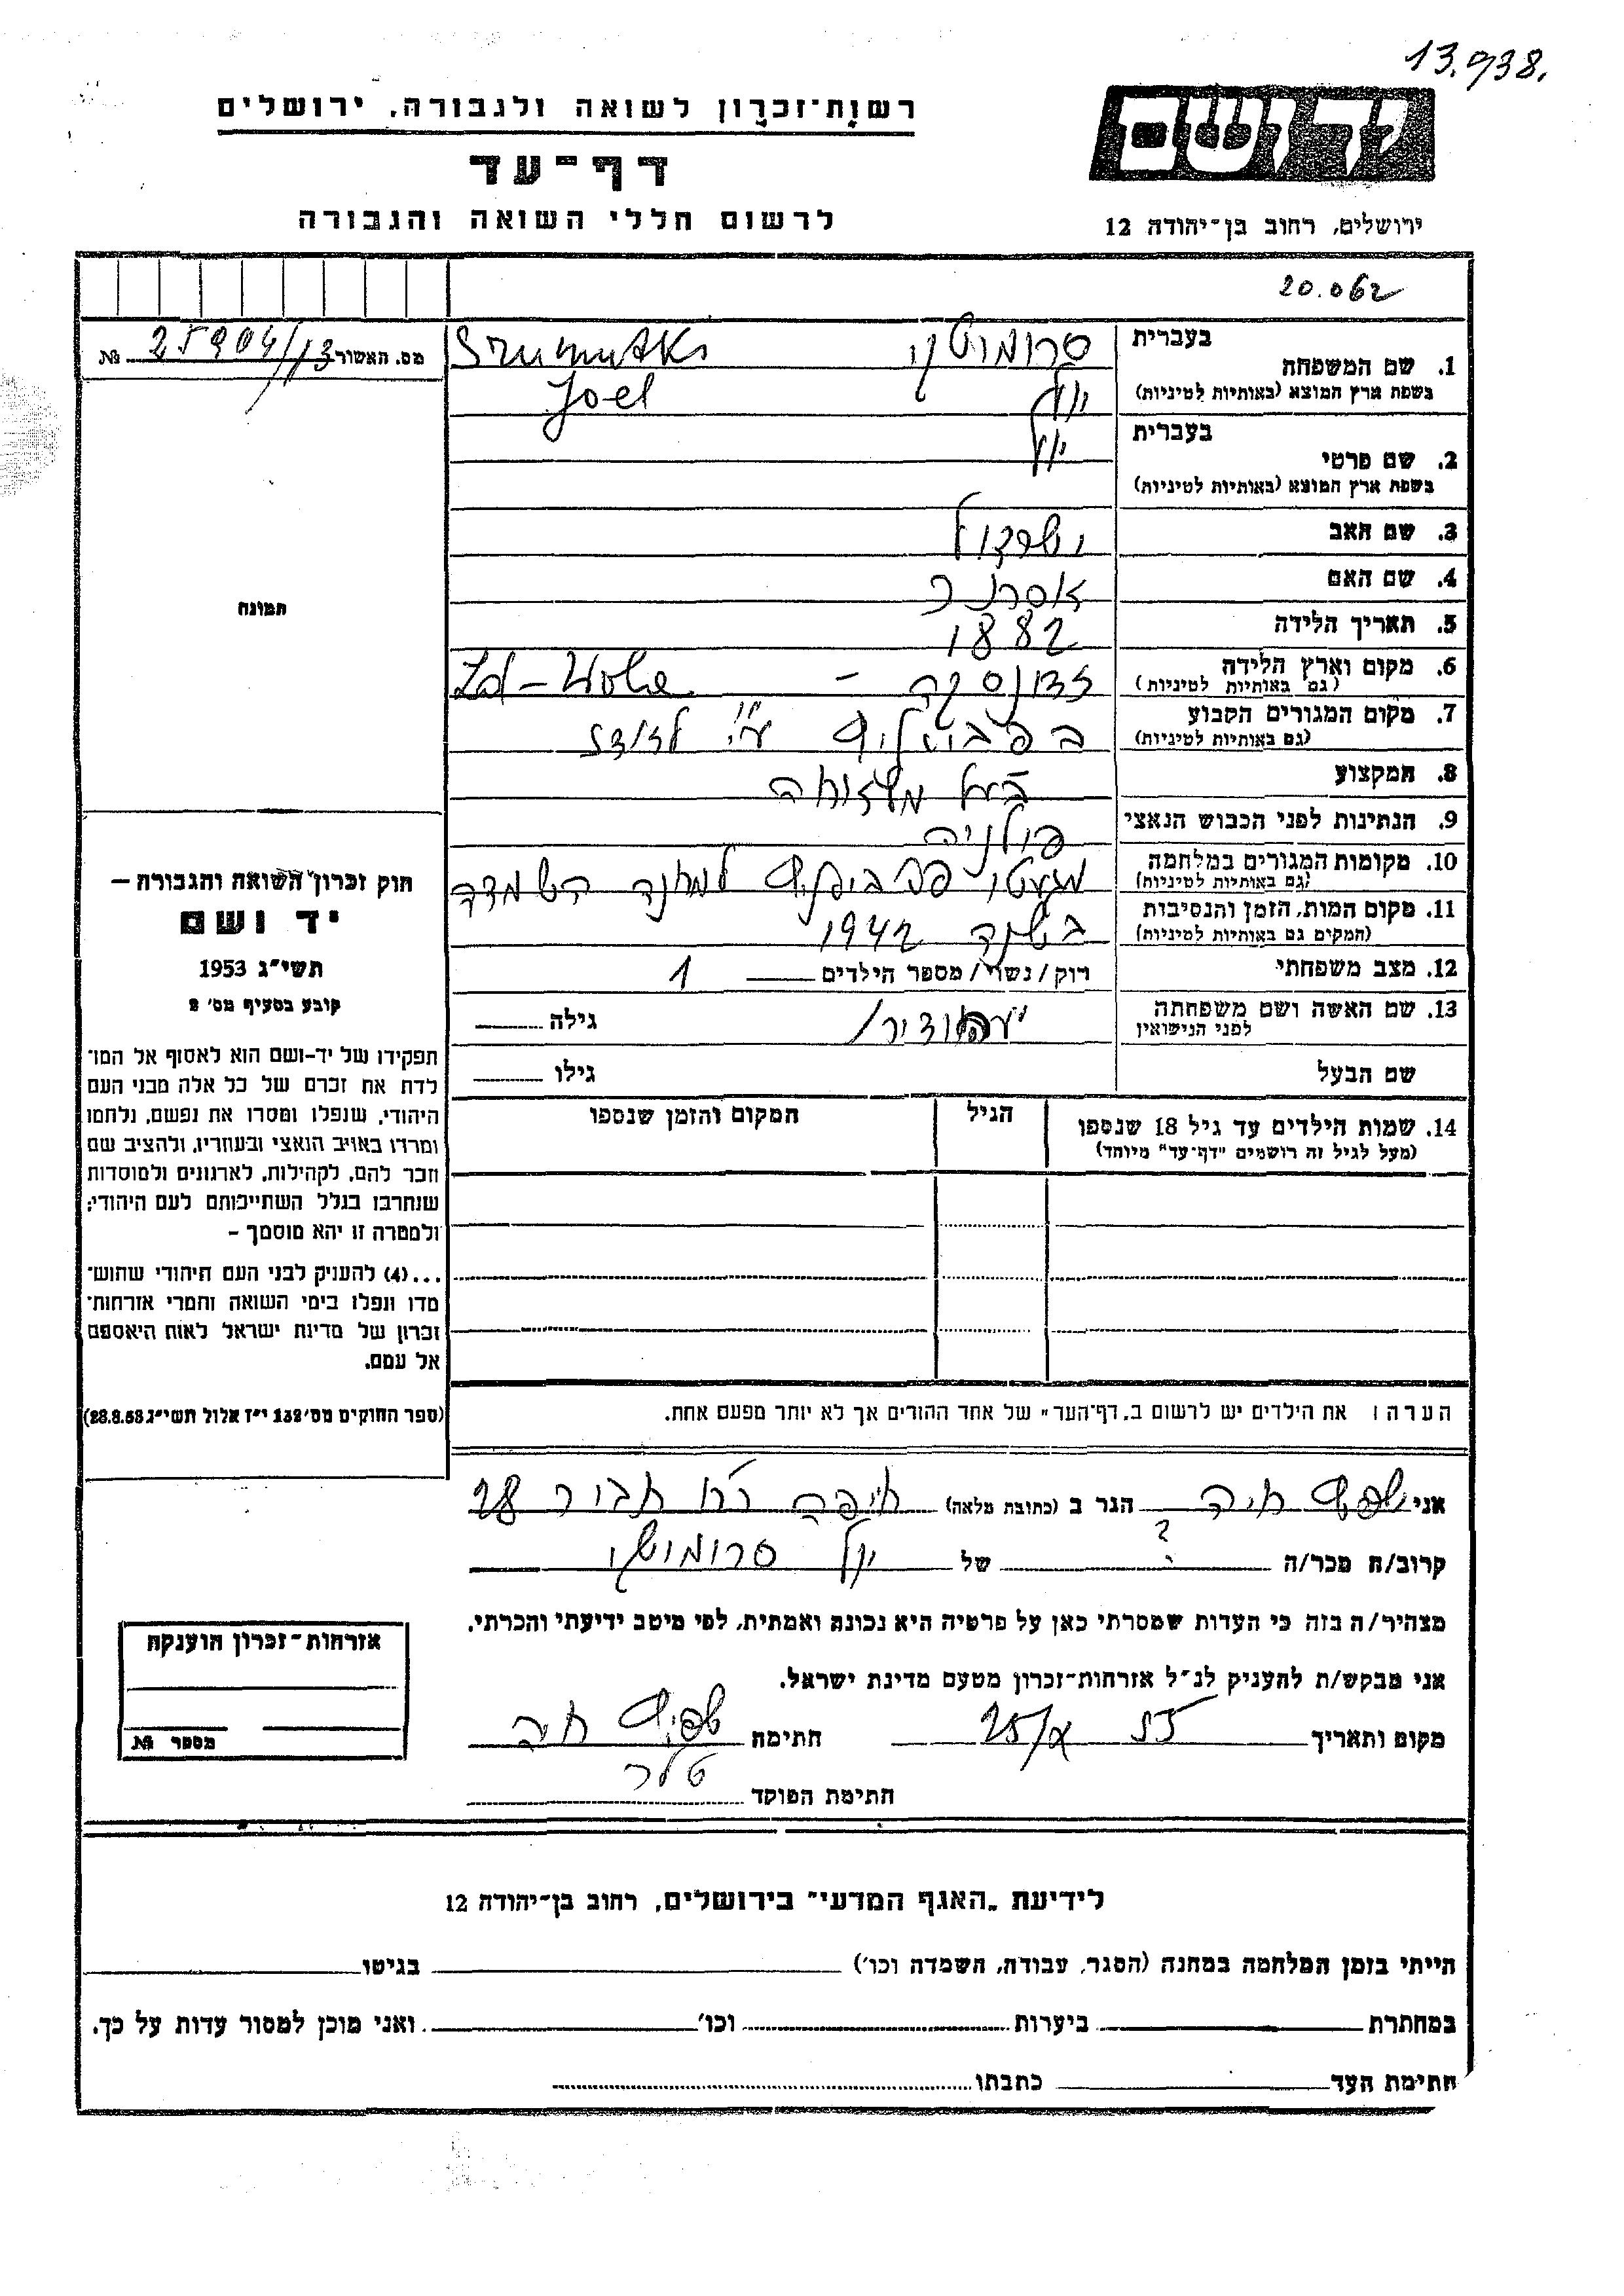 13.938.
רשות־זכרון לשואה ולגבורה, ירושלים
יד ושם
דף־עד
לרשום חללי השואה והגבורה
ירושלים, רחוב בן־יהודה 12
20.062
מס. האשור 25904/13 №
בעברית
1. שם המשפחה
סרומוטקי
בשפת ארץ המוצא (באותיות לטיניות)
Joel יואל
בעברית
יואל
2. שם פרטי
בשפת ארץ המוצא (באותיות לטיניות)
3. שם האב
4. שם האם
5. תאריך הלידה 1882
6. מקום וארץ הלידה
(גם באותיות לטיניות) Zd-Wola
7. מקום המגורים הקבוע
(גם באותיות לטיניות)
8. המקצוע
9. הנתינות לפני הכבוש הנאצי פולניה
10. מקומות המגורים במלחמה
(גם באותיות לטיניות) למחנה השמדה
11. מקום המות, הזמן והנסיבות
(המקום גם באותיות לטיניות) בשנה 1942
12. מצב משפחתי רוק / נשוי / מספר הילדים 1
13. שם האשה ושם משפחתה
לפני הנישואין
גילה
שם הבעל גילו
14. שמות הילדים עד גיל 18 שנספו
(מעל לגיל זה רושמים "דף־עד" מיוחד)
הגיל
המקום והזמן שנספו
הערה: את הילדים יש לרשום ב"דף־העד" של אחד ההורים אך לא יותר מפעם אחת.
תמונה
חוק זכרון השואה והגבורה –
יד ושם
תשי"ג 1953
קובע בסעיף מס' 2
תפקידו של יד-ושם הוא לאסוף אל המו־
לדת את זכרם של כל אלה מבני העם
היהודי, שנפלו ומסרו את נפשם, נלחמו
ומרדו באויב הנאצי ובעוזריו, ולהציב שם
וזכר להם, לקהילות, לארגונים ולמוסדות
שנחרבו בגלל השתייכותם לעם היהודי;
ולמטרה זו יהא מוסמך –
...(4) להעניק לבני העם היהודי שהוש־
מדו ונפלו בימי השואה והמרי אזרחות־
זכרון של מדינת ישראל לאות היאספם
אל עמם.
(ספר החוקים מס' 132 י"ז אלול תשי"ג 28.8.53)
אני חיה הגר ב (כתובת מלאה) חיפה רח תבור 28
קרוב/ה מכר/ה ? של יואל סרומוטקי
מצהיר/ה בזה כי העדות שמסרתי כאן על פרטיה היא נכונה ואמתית, לפי מיטב ידיעתי והכרתי.
אני מבקש/ת להעניק לנ"ל אזרחות־זכרון מטעם מדינת ישראל.
מקום ותאריך חתימה חיה
חתימת הפוקד
אזרחות־זכרון הוענקה
מספר №
לידיעת "האגף המדעי" בירושלים, רחוב בן־יהודה 12
הייתי בזמן המלחמה במחנה (הסגר, עבודה, השמדה וכו') בגיטו
במחתרת ביערות וכו' ואני מוכן למסור עדות על כך.
חתימת העד כתבתו